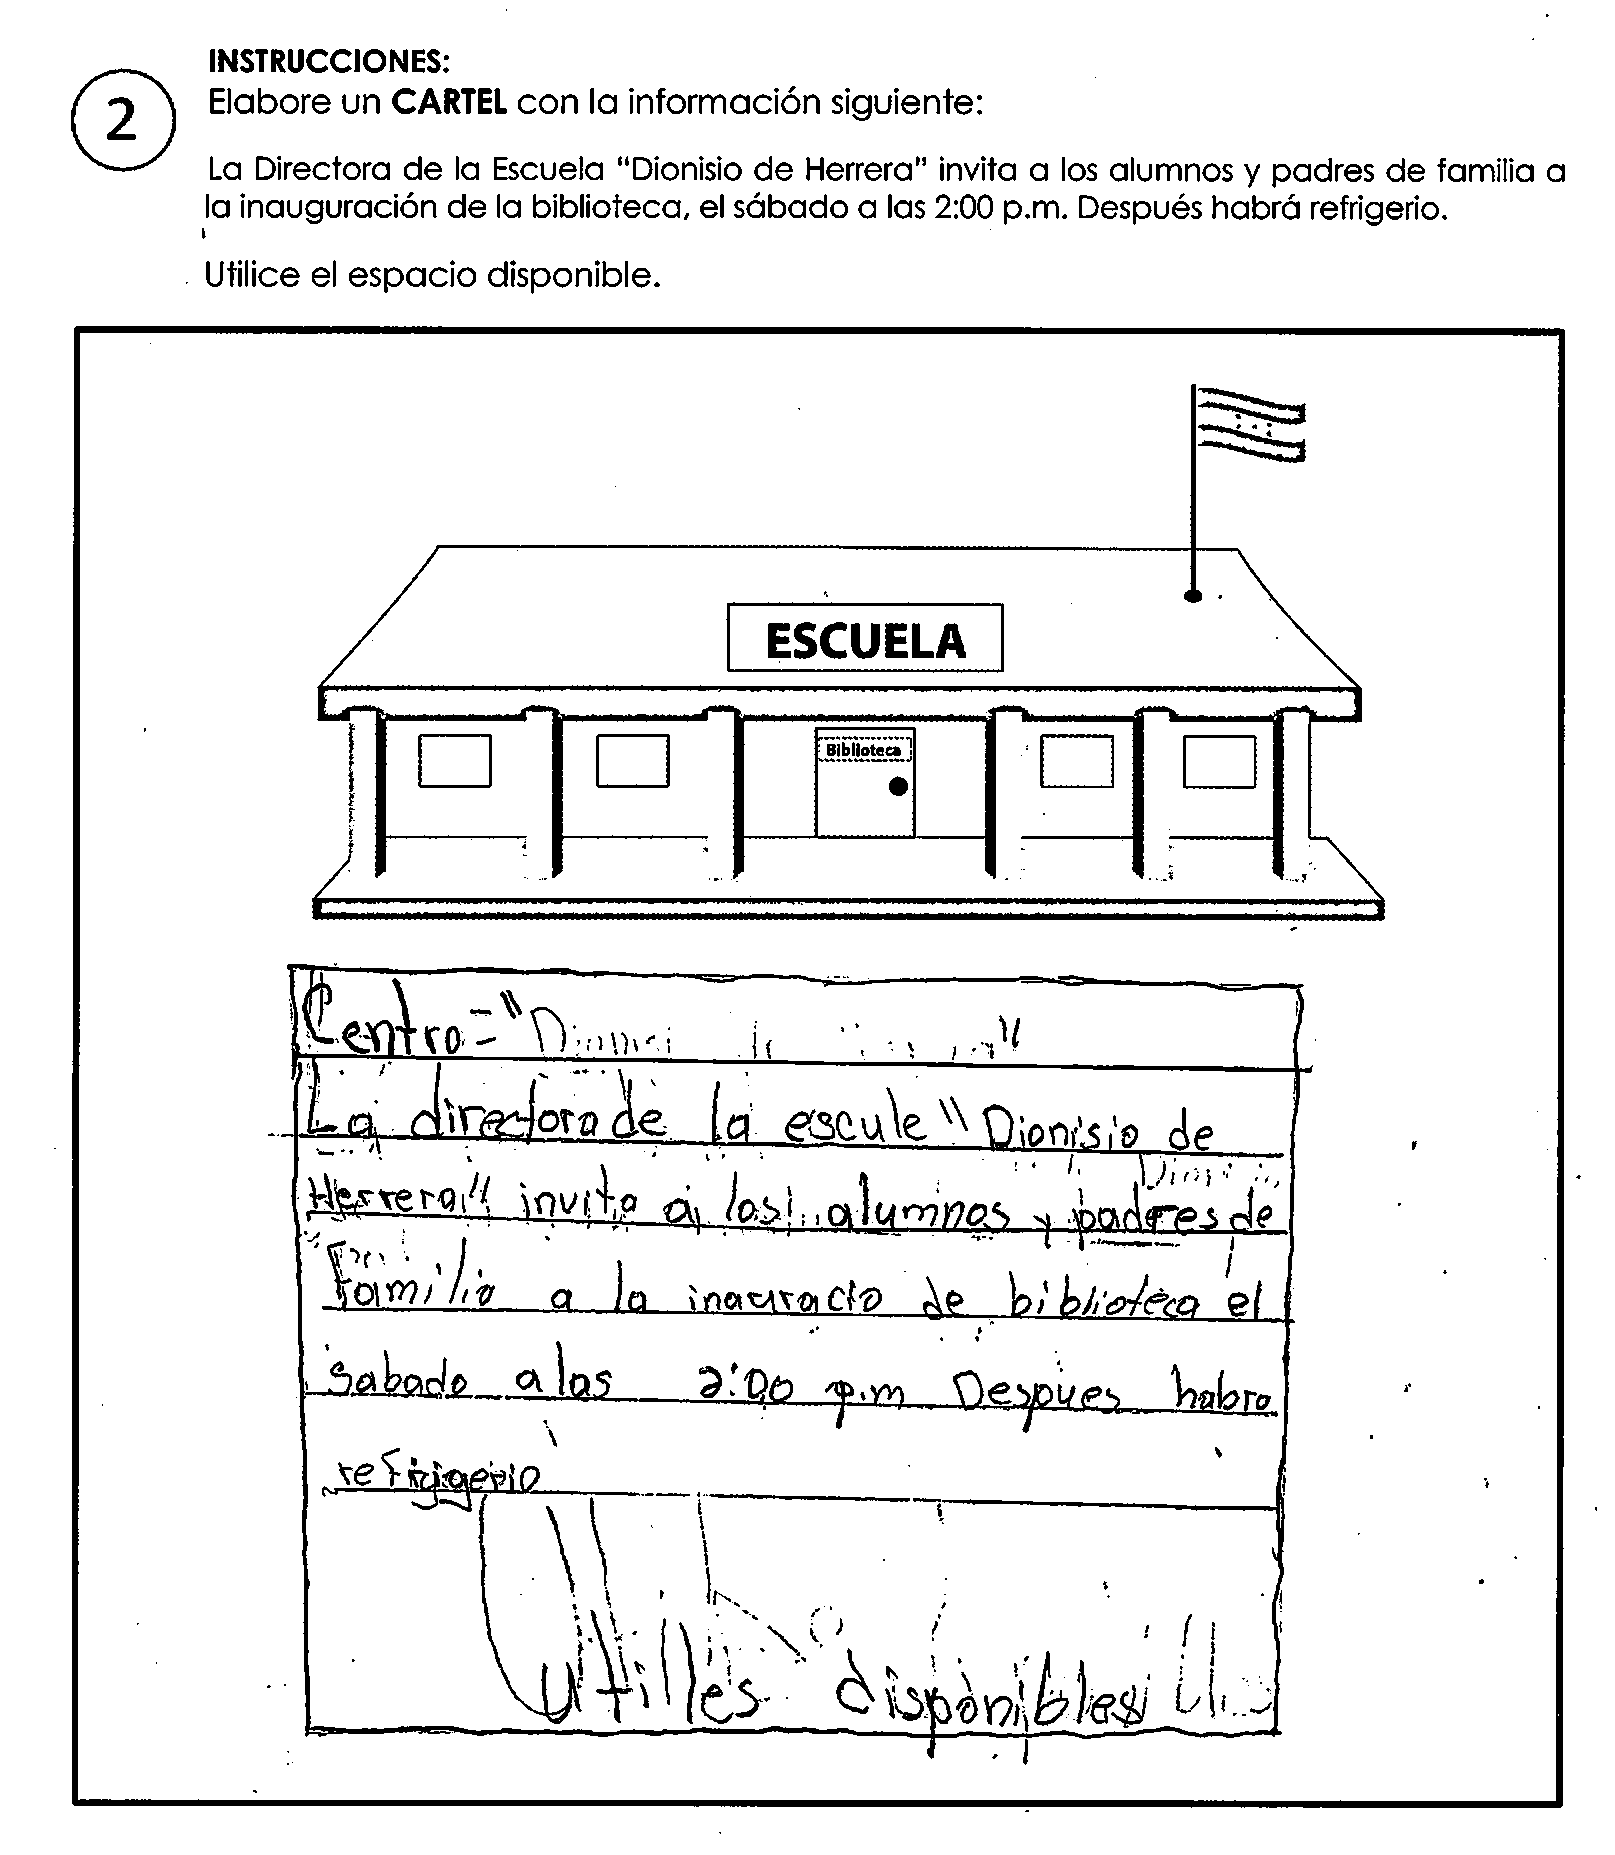 INSTRUCCIONES:
2
Elabore un CARTEL con la información siguiente:
La Directora de la Escuela "Dionisio de Herrera" invita a los alumnos y padres de familia a
la inauguración de la biblioteca, el sábado a las 2:00 p.m. Después habrá refrigerio.
Utilice el espacio disponible.
ESCUELA
Biblioteca
Centro = " "
La directora de la escule "Dionisio de
Herrera" invita a los alumnos y padres de
Familia a la inauracio de biblioteca el
Sabado a las 2:00 p.m Despues habra
refrigerio
utilles disponibles